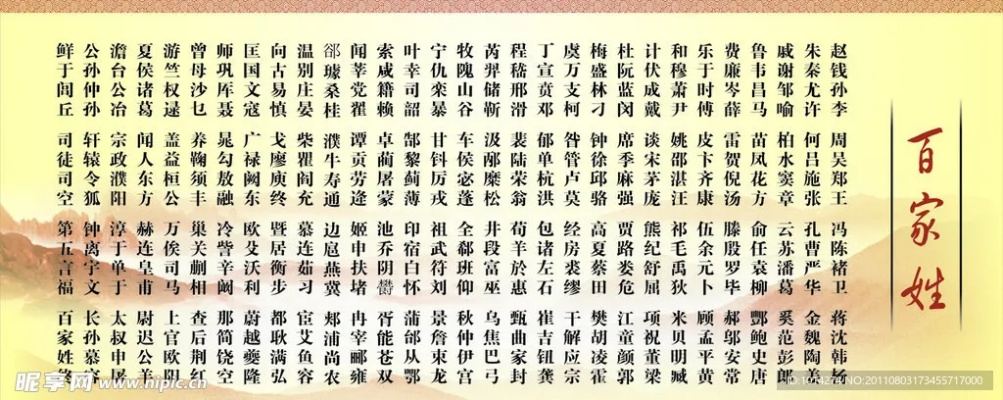 百家姓
赵钱孙李 周吴郑王 冯陈褚卫 蒋沈韩杨
朱秦尤许 何吕施张 孔曹严华 金魏陶姜
戚谢邹喻 柏水窦章 云苏潘葛 奚范彭郎
鲁韦昌马 苗凤花方 俞任袁柳 酆鲍史唐
费廉岑薛 雷贺倪汤 滕殷罗毕 郝邬安常
乐于时傅 皮卞齐康 伍余元卜 顾孟平黄
和穆萧尹 姚邵湛汪 祁毛禹狄 米贝明臧
计伏成戴 谈宋茅庞 熊纪舒屈 项祝董梁
杜阮蓝闵 席季麻强 贾路娄危 江童颜郭
梅盛林刁 钟徐邱骆 高夏蔡田 樊胡凌霍
虞万支柯 昝管卢莫 经房裘缪 干解应宗
丁宣贲邓 郁单杭洪 包诸左石 崔吉钮龚
程嵇邢滑 裴陆荣翁 荀羊於惠 甄曲家封
芮羿储靳 汲邴糜松 井段富巫 乌焦巴弓
牧隗山谷 车侯宓蓬 全郗班仰 秋仲伊宫
宁仇栾暴 甘钭厉戎 祖武符刘 景詹束龙
叶幸司韶 郜黎蓟薄 印宿白怀 蒲邰从鄂
索咸籍赖 卓蔺屠蒙 池乔阴鬱 胥能苍双
闻莘党翟 谭贡劳逄 姬申扶堵 冉宰郦雍
郤璩桑桂 濮牛寿通 边扈燕冀 郏浦尚农
温别庄晏 柴瞿阎充 慕连茹习 宦艾鱼容
向古易慎 戈廖庾终 暨居衡步 都耿满弘
匡国文寇 广禄阙东 欧殳沃利 蔚越夔隆
师巩厍聂 晁勾敖融 冷訾辛阚 那简饶空
曾毋沙乜 养鞠须丰 巢关蒯相 查后荆红
游竺权逯 盖益桓公 万俟司马 上官欧阳
夏侯诸葛 闻人东方 赫连皇甫 尉迟公羊
澹台公冶 宗政濮阳 淳于单于 太叔申屠
公孙仲孙 轩辕令狐 钟离宇文 长孙慕容
鲜于闾丘 司徒司空 第五言福 百家姓终
昵享网 www.nipic.cn